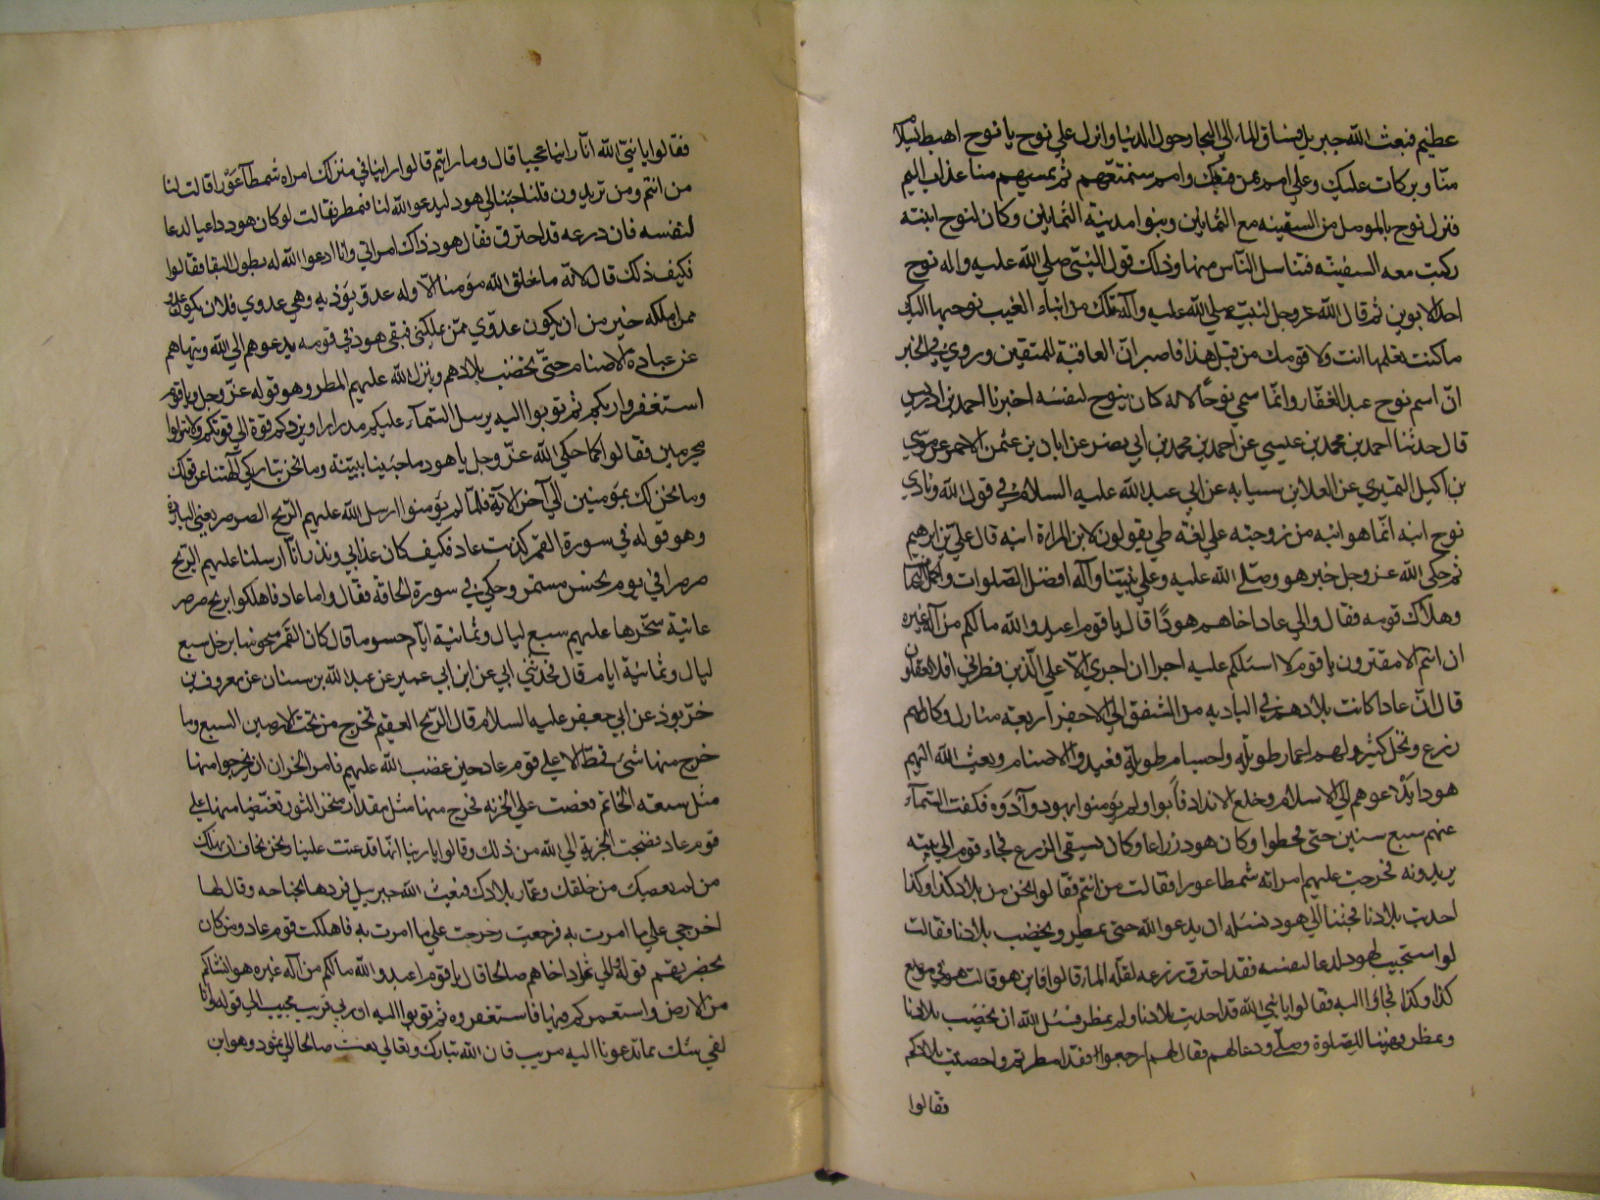 عظيم فبعث الله جبرييل فساق الماء الي البحار حول الدنيا وانزل علي نوح يا نوح اهبط بسلام
منّا وبركات عليك وعلي امم ممن معك وامم سنمتعهم ثم يمسهم منا عذاب اليم
فنزل نوح بالموصل من السفينه مع الثمانين وبنوا مدينة الثمانين وكان لنوح ابنته
ركبت معه السفينه فتناسل النّاس منها وذلك قول النبّي صلي الله عليه واله نوح
احد الابوين ثم قال الله عز وجل لنبيّه صلي الله عليه وآله تلك من انباء الغيب نوحيها اليك
ما كنت تعلمها انت ولا قومك من قبل هذا فاصبر انّ العاقبة للمتقين وروي في الخبر
انّ اسم نوح عبد الغفّار وانّما سمي نوحًا لانه كان ينوح لنفسه اخبرنا احمد بن ادريس
قال حدثنا احمد بن محمد بن عيسي عن احمد بن محمد بن ابي نصر عن ابان بن عثمن الاحمر عن موسي
بن اكيل النميري عن العلا بن سيابه عن ابي عبد الله عليه السلام في قول الله ونادي
نوح ابنه انّما هو ابنه من زوجته علي لغة طي يقولون لابن المراة ابنه قال علي بن ابرهيم
ثم حكي الله عز وجل خبر هود صلّي الله عليه وعلي نبيّنا وآله افضل الصّلوات واكمل
وهلاك قومه فقال والي عاد اخاهم هودًا قال يا قوم اعبدوا الله ما لكم من آله غيره
ان انتم الا مفترون يا قوم لا اسئلكم عليه اجرا ان اجري الّا علي الّذي فطرني افلا تعقلون
قال انّ عادا كانت بلادهم في الباديه من الشقيق الي الاجفر اربعة منازل وكان لهم
زرع ونخل كثير ولهم اعمار طويلة واجسام طويلة فعبدوا الاصنام وبعث الله اليهم
هودا يدعوهم الي الاسلام وخلع الانداد فابوا ولم يؤمنوا بهود وآذوه فكفت السّمآء
عنهم سبع سنين حتى قحطوا وكان هود زراعا وكان يسقي الزرع فجاء قوم الي بيته
يريدونه فخرجت عليهم امراته شمطا عورا فقالت من انتم فقالوا نحن من بلاد كذا وكذا
اجدبت بلادنا فجئنا الي هود نسئله ان يدعو الله حتى تمطر وتخصب بلادنا فقالت
لو استجيب لهود لدعا لنفسه فقد احترق زرعه لقلة الماء قالوا فاين هو قالت هو في موضع
كذا وكذا فجاؤا اليه فقالوا يا نبي الله قد اجدبت بلادنا ولم نمطر فسئل الله ان تخصب بلادنا
وتمطر فتهيّا للصّلوة وصلّي ودعا لهم فقال لهم ارجعوا فقد امطرتم واخصبت بلادكم
فقالوا
فقالوا يا نبيّ الله انّا راينا عجبا قال وما رايتم قالوا راينا في منزلك امراه شمطآ عورا قالت لنا
من انتم ومن تريدون قلنا جئنا الي هود ليدعو الله لنا فنمطر فقالت لو كان هود داعيا لدعا
لنفسه فان زرعه قد احترق فقال هود ذاك امراتي وانا ادعوا الله له بطول البقا فقالوا
فكيف ذلك قال لانّه ما خلق الله مؤمنا الّا وله عدوّ يؤذيه وهي عدوي فلان يكون عدوي
ممن املكه خير من ان يكون عدوّي ممّن يملكني فبقي هود في قومه يدعوهم الي الله وينهاهم
عن عبادة الاصنام حتّي تخصب بلادهم وينزل الله عليهم المطر وهو قوله عزّ وجل ويا قوم
استغفروا ربكم ثم توبوا اليه يرسل السّمآء عليكم مدرارا ويزدكم قوة الي قوتكم ولا تتولوا
مجرمين فقالوا كما حكي الله عزّ وجل يا هود ما جئتنا ببيّنة وما نحن بتاركي آلهتنا عن قولك
وما نحن لك بمؤمنين الي آخر الآية فلمّا لم يؤمنوا ارسل الله عليهم الرّيح الصرصر يعني الباردة
وهو قوله في سورة القمر كذبت عاد فكيف كان عذابي ونذر انّآ ارسلنا عليهم الرّيح
صرصرا في يوم نحس مستمر وحكي في سورة الحاقة فقال واما عاد فاهلكوا بريح صرصر
عاتية سخّرها عليهم سبع ليال وثمانية ايّام حسوما قال كان القمر منحوسا بزحل سبع
ليال وثمانية ايام قال فحدثني ابي عن ابن ابي عمير عن عبد الله بن سنان عن معروف بن
خرّبوذ عن ابي جعفر عليه السلام قال الرّيح العقيم تخرج من تحت الارضين السبع وما
خرج منها شئ قط الا علي قوم عاد حين غضب الله عليهم فامر الخزان ان يخرجوا منها
مثل سعة الخاتم فعصت علي الخزنه فخرج منها مثل مقدار منخر الثور تغيّضا منها علي
قوم عاد فضجت الخزنة الي الله من ذلك وقالوا يا ربنا انّها قد عتت علينا ونحن نخاف ان يهلك
من لم يعصيك من خلقك وعمّار بلادك فبعث الله جبرييل فردها بجناحه وقال لها
اخرجي علي ما امرت به فرجعت وخرجت علي ما امرت به فاهلكت قوم عاد ومن كان
بحضرتهم قوله والي ثمود اخاهم صالحا قال يا قوم اعبدوا الله ما لكم من آله غيره هو انشاكم
من الارض واستعمركم فيها فاستغفروه ثم توبوا اليه ان ربي قريب مجيب الي قوله وانّا
لفي شك مما تدعونا اليه مريب فان الله تبارك وتعالي بعث صالحا الي ثمود وهو ابن